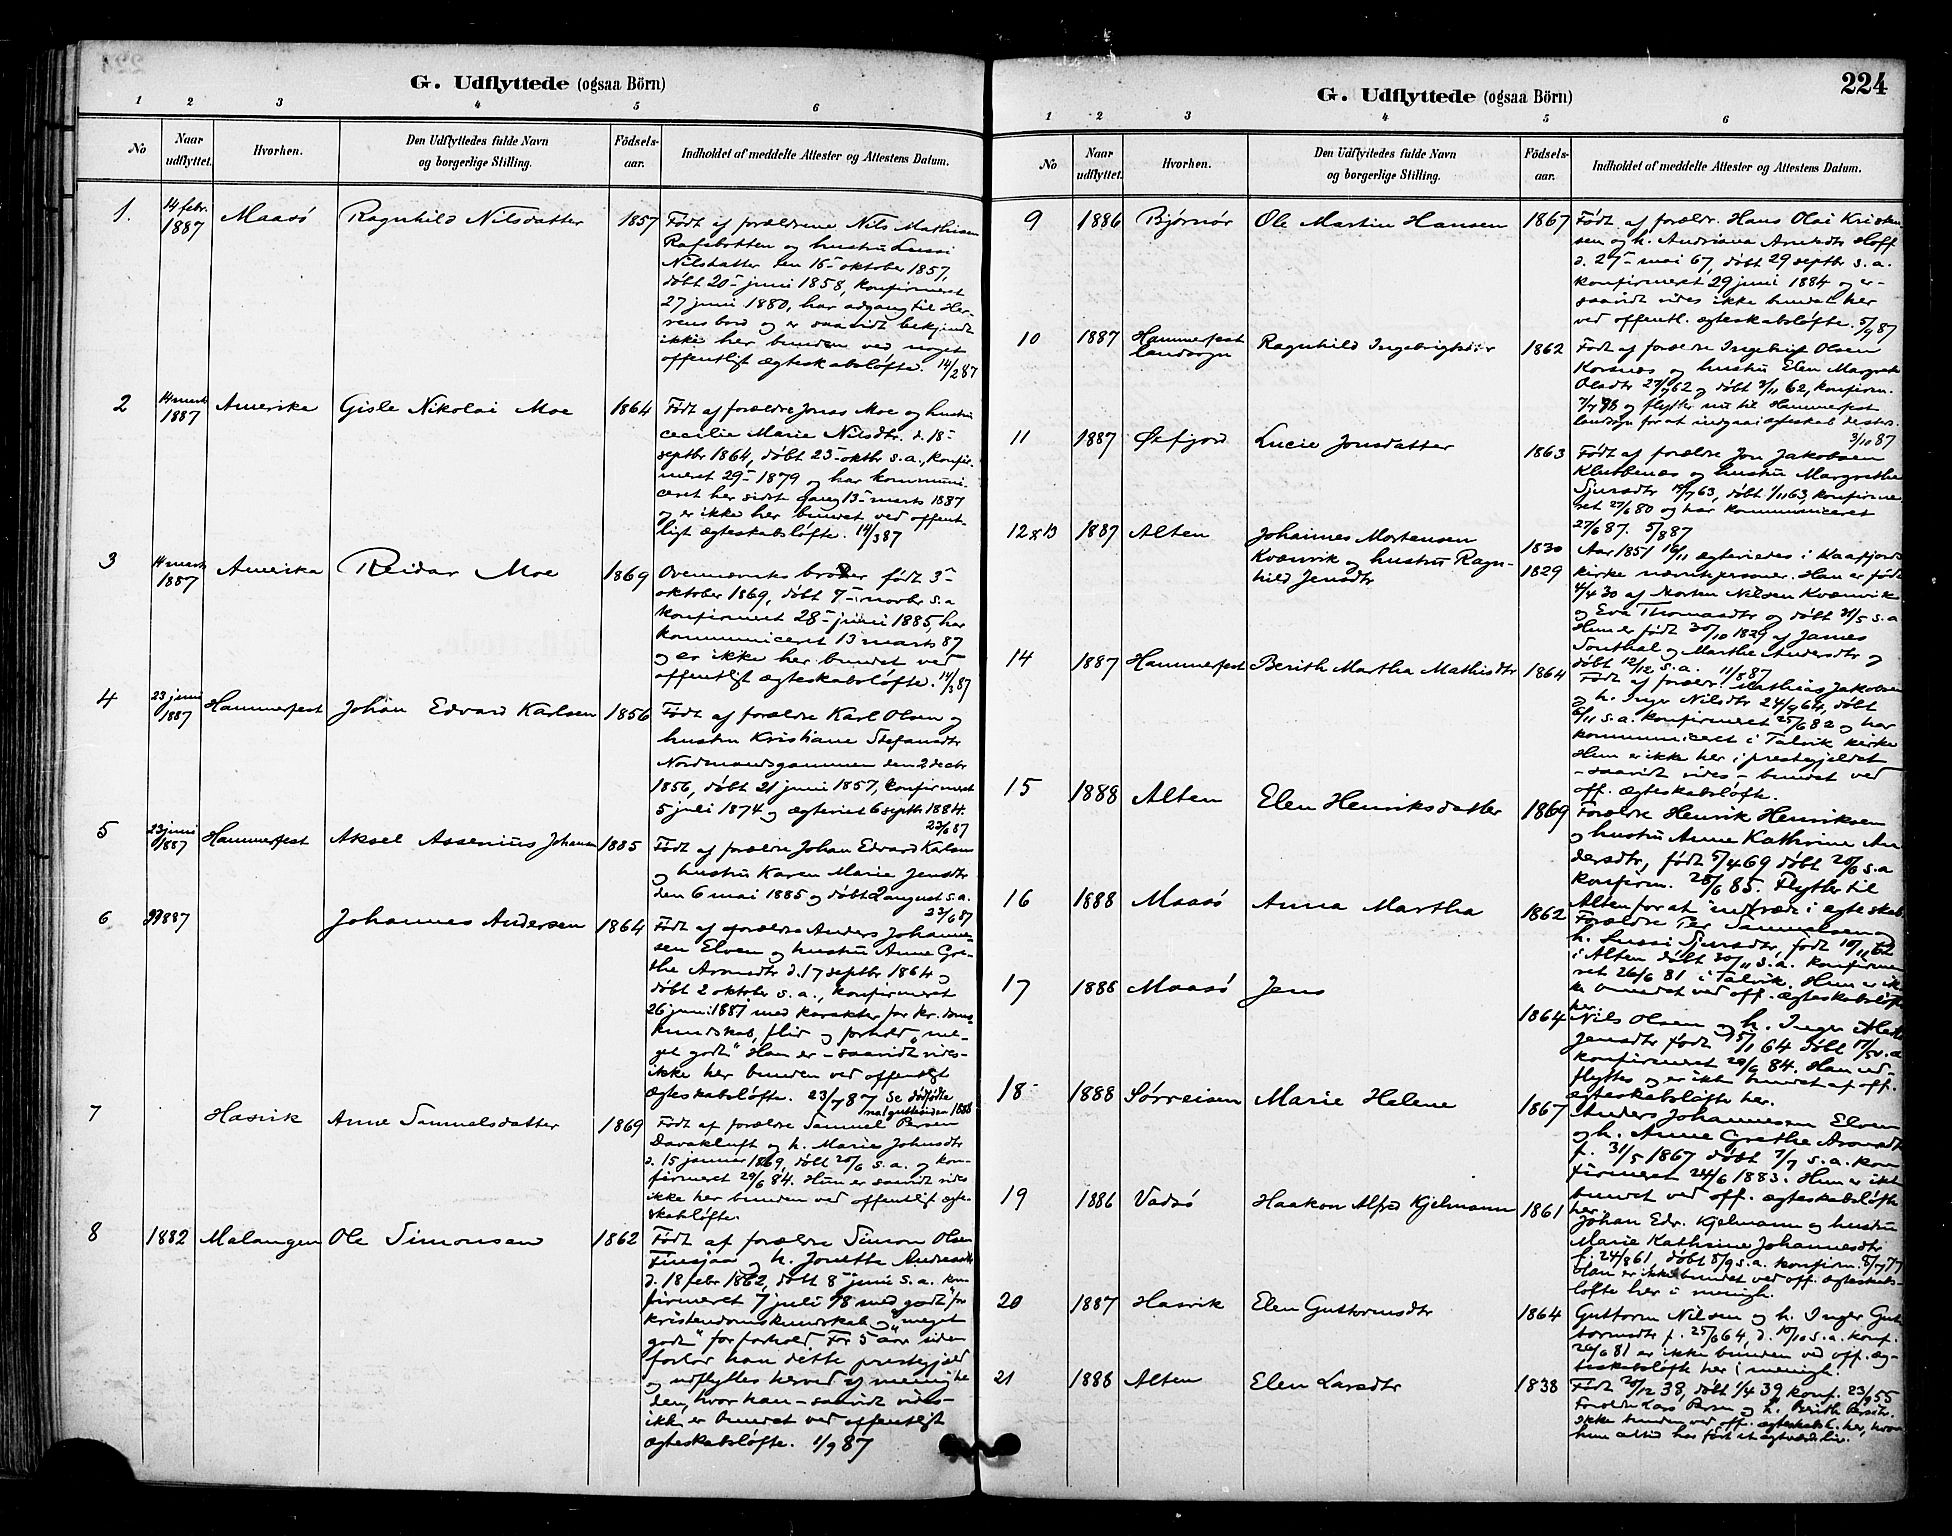 G. Udflyttede (ogsaa Börn)
1 2 3 4 5 6
No
Naar udflyttet.
Hvorhen.
Den Udflyttedes fulde Navn og borgerlige Stilling.
Födsels-aar.
Indholdet af meddelte Attester og Attestens Datum.
1. 14 febr. 1887 Maasö Ragnhild Nilsdatter 1857 Födt af forældrene Nils Mathisen
Rafsbotten og hustru Lussi
Nilsdatter den 16- oktober 1857,
döbt 20- juni 1858, konfirmeret
27 juni 1880, har adgang til Her-
rens bord og er saavidt bekjendt
ikke her bunden ved noget
offentligt ægteskabslöfte. 14/2 87
2 14 marts 1887 Amerika Gisle Nikolai Moe 1864 Födt af forældre Jonas Moe og hustru
Cecilie Marie Nilsdtr. d. 18-
septbr 1864, döbt 23- oktbr s.a., konfir-
meret 29- 1879 og har kommuni-
ceret her sidste gang 13- marts 1887
og er ikke her bundet ved offent-
ligt ægteskabslöfte. 14/3 87
3 14 marts 1887 Amerika Reidar Moe 1869 Ovennævntes broder födt 3-
oktober 1869, döbt 7- novbr s.a.
konfirmeret 28- juni 1885, har
kommuniceret 13 marts 87
og er ikke her bundet ved
offentligt ægteskabslöfte. 14/3 87
4 23 juni 1887 Hammerfest Johan Edvard Karlsen 1856 Födt af forældre Karl Olsen og
hustru Kristiane Stefansdtr
Nordmandsgammen den 2 decbr
1856, döbt 21 juni 1857, konfirmeret
5 juli 1874 og ægteviet 6 septbr 1884.
23/6 87
5 23 juni 1887 Hammerfest Aksel Assenius Johansen 1885 Födt af forældre Johan Edvard Karlsen
og hustru Karen Marie Jensdtr
den 6 mai 1885 og döbt 2 august s.a.
23/6 87
6 1887 Johannes Andersen 1864 Födt af forældre Anders Johanne-
sen Elven og hustru Anne Gre-
the Aronsdtr d. 17 septbr 1864 og
döbt 2 oktober s.a., konfirmeret
26 juni 1881 med karakter for kr. doms-
kundskab, flid og forhold "me-
get godt" Han er - saavidt vides-
ikke her bunden ved offentligt
ægteskabslöfte. 23/7 87 Se dödfödte
1888
7 Hasvik Anne Samuelsdatter 1869 Födt af forældre Samuel Persen
Davakluft og h. Marie Johnsdtr
d. 15 januar 1869, döbt 20/6 s.a. og kon-
firmeret 29/6 84. Hun er saavidt vides
ikke her bunden ved offentligt ægte-
skabslöfte.
8 1882 Malangen Ole Simonsen 1862 Födt af forældre Simon Olsen
og h. Jonetta Andreasdtr
d. 18 febr 1862, döbt 8- juni s.a. kon
firmeret 7 juli 78 med "godt" for
kristendomskundskab og "meget
godt" for forhold. For 5 aar siden
forlod han dette prestegjeld
og udflyttes herved af menighe
den, hvor han - saavidt vides-
ikke er bundet ved offentligt
ægteskabslöfte. 1/9 87
224
G. Udflyttede (ogsaa Börn)
1 2 3 4 5 6
No
Naar udflyttet.
Hvorhen.
Den Udflyttedes fulde Navn og borgerlige Stilling.
Födsels-aar.
Indholdet af meddelte Attester og Attestens Datum.
9 1886 Bjørnør Ole Martin Hansen 1867 Födt af forældr. Hans Olai Kristen
sen og h. Andriana Arntsdtr Hoff
d. 27- mai 67, döbt 29 septbr s.a.
konfirmeret 29 juni 1884 og er-
saavidt vides ikke bundet her
ved offentl. ægteskabslöfte. 5/9 87
10 1887 Hammerfest landsogn Ragnhild Ingebrigtsdtr 1862 Födt af forældre Ingebrigt Olsen
Korsnes og hustru Elen Margrete
Olsdtr 27/9 62 og döbt 2/11 62, konfirm.
7/7 78 og flytter nu til Hammerfest
landsogn for at indgaa i ægteskab dersteds.
3/10 87
11 1887 Øxfjord Lucie Jonsdatter 1863 Födt af forældre Jon Jakobsen
Klubbenæs og hustru Margrethe
Sjursdtr 63, döbt 1/11 63, konfirme
ret 27/6 80 og har kommuniceret
27/6 87. 5/8 87
12 & 13 1887 Alten Johannes Mortensen
Kvænvik og hustru Ragn-
hild Jensdtr 1830 1829 Aar 1851 16/11 ægteviedes i Kaafjords
kirke nævnte personer. Han er födt
4/4 30 af Morten Nilsen Kvænvik
og Eva Thomasdtr og döbt 31/5 s.a
Hun er födt 30/10 1829 af James
og Marthe Andersdtr og
döbt 12/12 s.a. 11/8 87
14 1887 Hammerfest Berith Martha Mathisdtr 1864 Födt af forældr. Mathias Jakobsen
og h. Inger Nilsdtr 24/9 64, döbt
6/11 s.a. konfirmeret 25/6 82 og har
kommuniceret i Talvik kirke
Hun er ikke her i prestegjeldet
- saavidt vides - bundet ved
off. ægteskabslöfte.
15 1888 Alten Elen Henriksdatter 1869 Forældre Henrik Henriksen
og hustru Anne Kathrine An
dersdtr, födt 5/4 69 döbt 20/6 s.a
konfirm. 28/6 85. Flytter til
Alten for at indtræde i ægteskab.
16 1888 Maasö Anna Martha 1862 Forældre Per Samuelsen og
h. Lussi Sjursdtr, födt 10/11 62
i Alten döbt 30/11 s.a. konfirme
ret 26/6 81 i Talvik. Hun er ik
ke bundet ved off. ægteskabslöfte
her.
17 1888 Maasö Jens 1864 Nils Olsen og h. Inger
Jensdtr födt 15/1 64 döbt 17/5 s.a
konfirmeret 29/6 84. Han ud-
flyttes og er ikke bundet af off.
ægteskabslöfte her.
18- 1888 Sörreisen Marie Helene 1867 Anders Johannesen Elven
og h. Anne Grethe Aronsdtr
f. 31/5 1867 döbt 7/7 s.a. kon
firmeret 24/6 1883. Hun er ikke
bundet ved off. ægteskabslöfte
her.
19 1886 Vadsö Haakon Alfred Kjelmann 1861 Johan Edv. Kjelmann og hustru
Marie Kathrine Johannesdtr
f. 24/8 61, döbt 8/9 s.a. konfirm. 8/7 77
Han er ikke bundet ved off. ægteskabs-
löfte her i menigh.
20 1887 Hasvik Elen Guttormsdtr 1864 Guttorm Nilsen og h. Inger Gut
tormsdtr f. 25/6 64, d. 10/10 s.a. konf.
26/6 81 er ikke bunden ved off. æg-
teskabslöfte her i menigh.
21 1888 Alten Elen Larsdtr 1838 Födt 20/12 38, döbt 1/4 39 konf. 23/9 55
Forældre Lars Persen og h. Berith Persdtr.
Ikke bunden ved off. ægteskabsl. her, hvor
hun altid har fört et agtværdt liv.